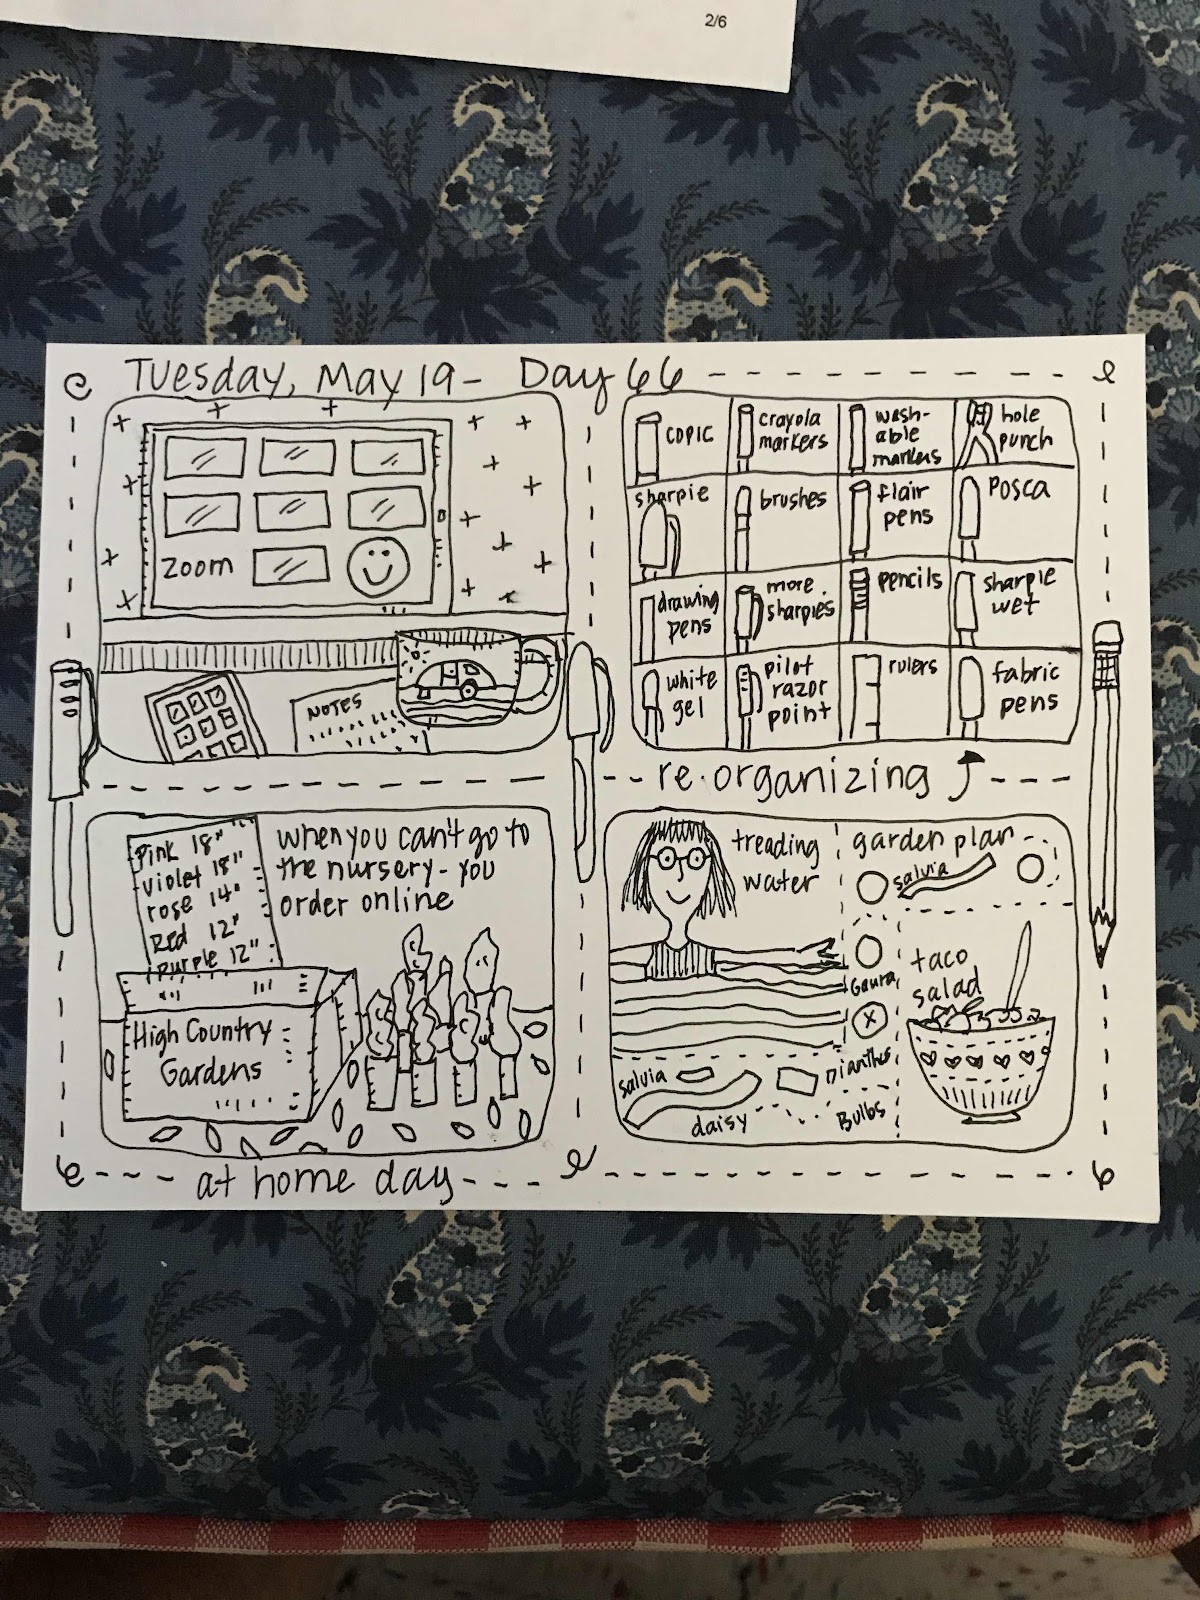 2/6
Tuesday, May 19- Day 66
zoom
NOTES
COPIC
crayola
markers
wash-
able
markers
hole
punch
sharpie
brushes
flair
pens
Posca
drawing
pens
more
sharpies
pencils
sharpie
wet
white
gel
pilot
razor
point
rulers
fabric
pens
re.organizing
Pink 18"
violet 18"
rose 14"
Red 12"
purple 12"
when you can't go to
the nursery - you
order online
High Country
Gardens
treading
water
garden plan
salvia
Gaura
x
Dianthus
taco
salad
salvia
daisy
Bulbs
at home day